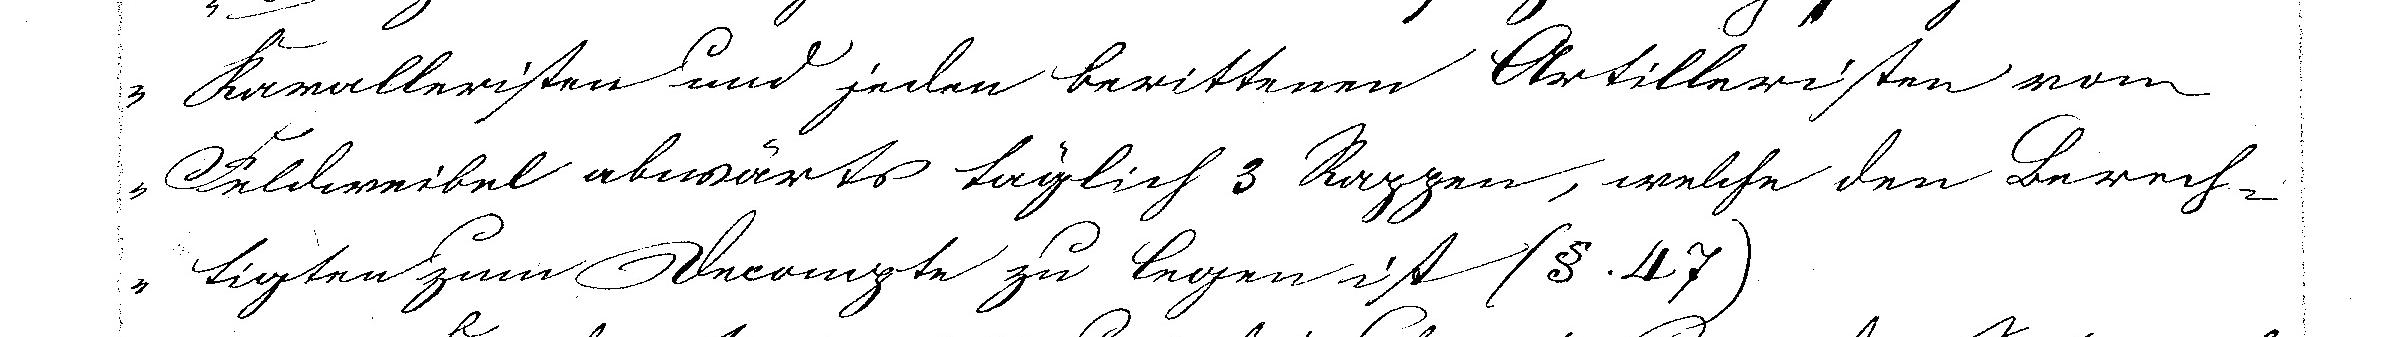 „ Kavalleristen und jeden berittenen Artilleristen vom
„ Feldweibel abwärts täglich 3 Rappen, welche den Berech-
„ tigten zum Decompte zu legen ist (§. 47)